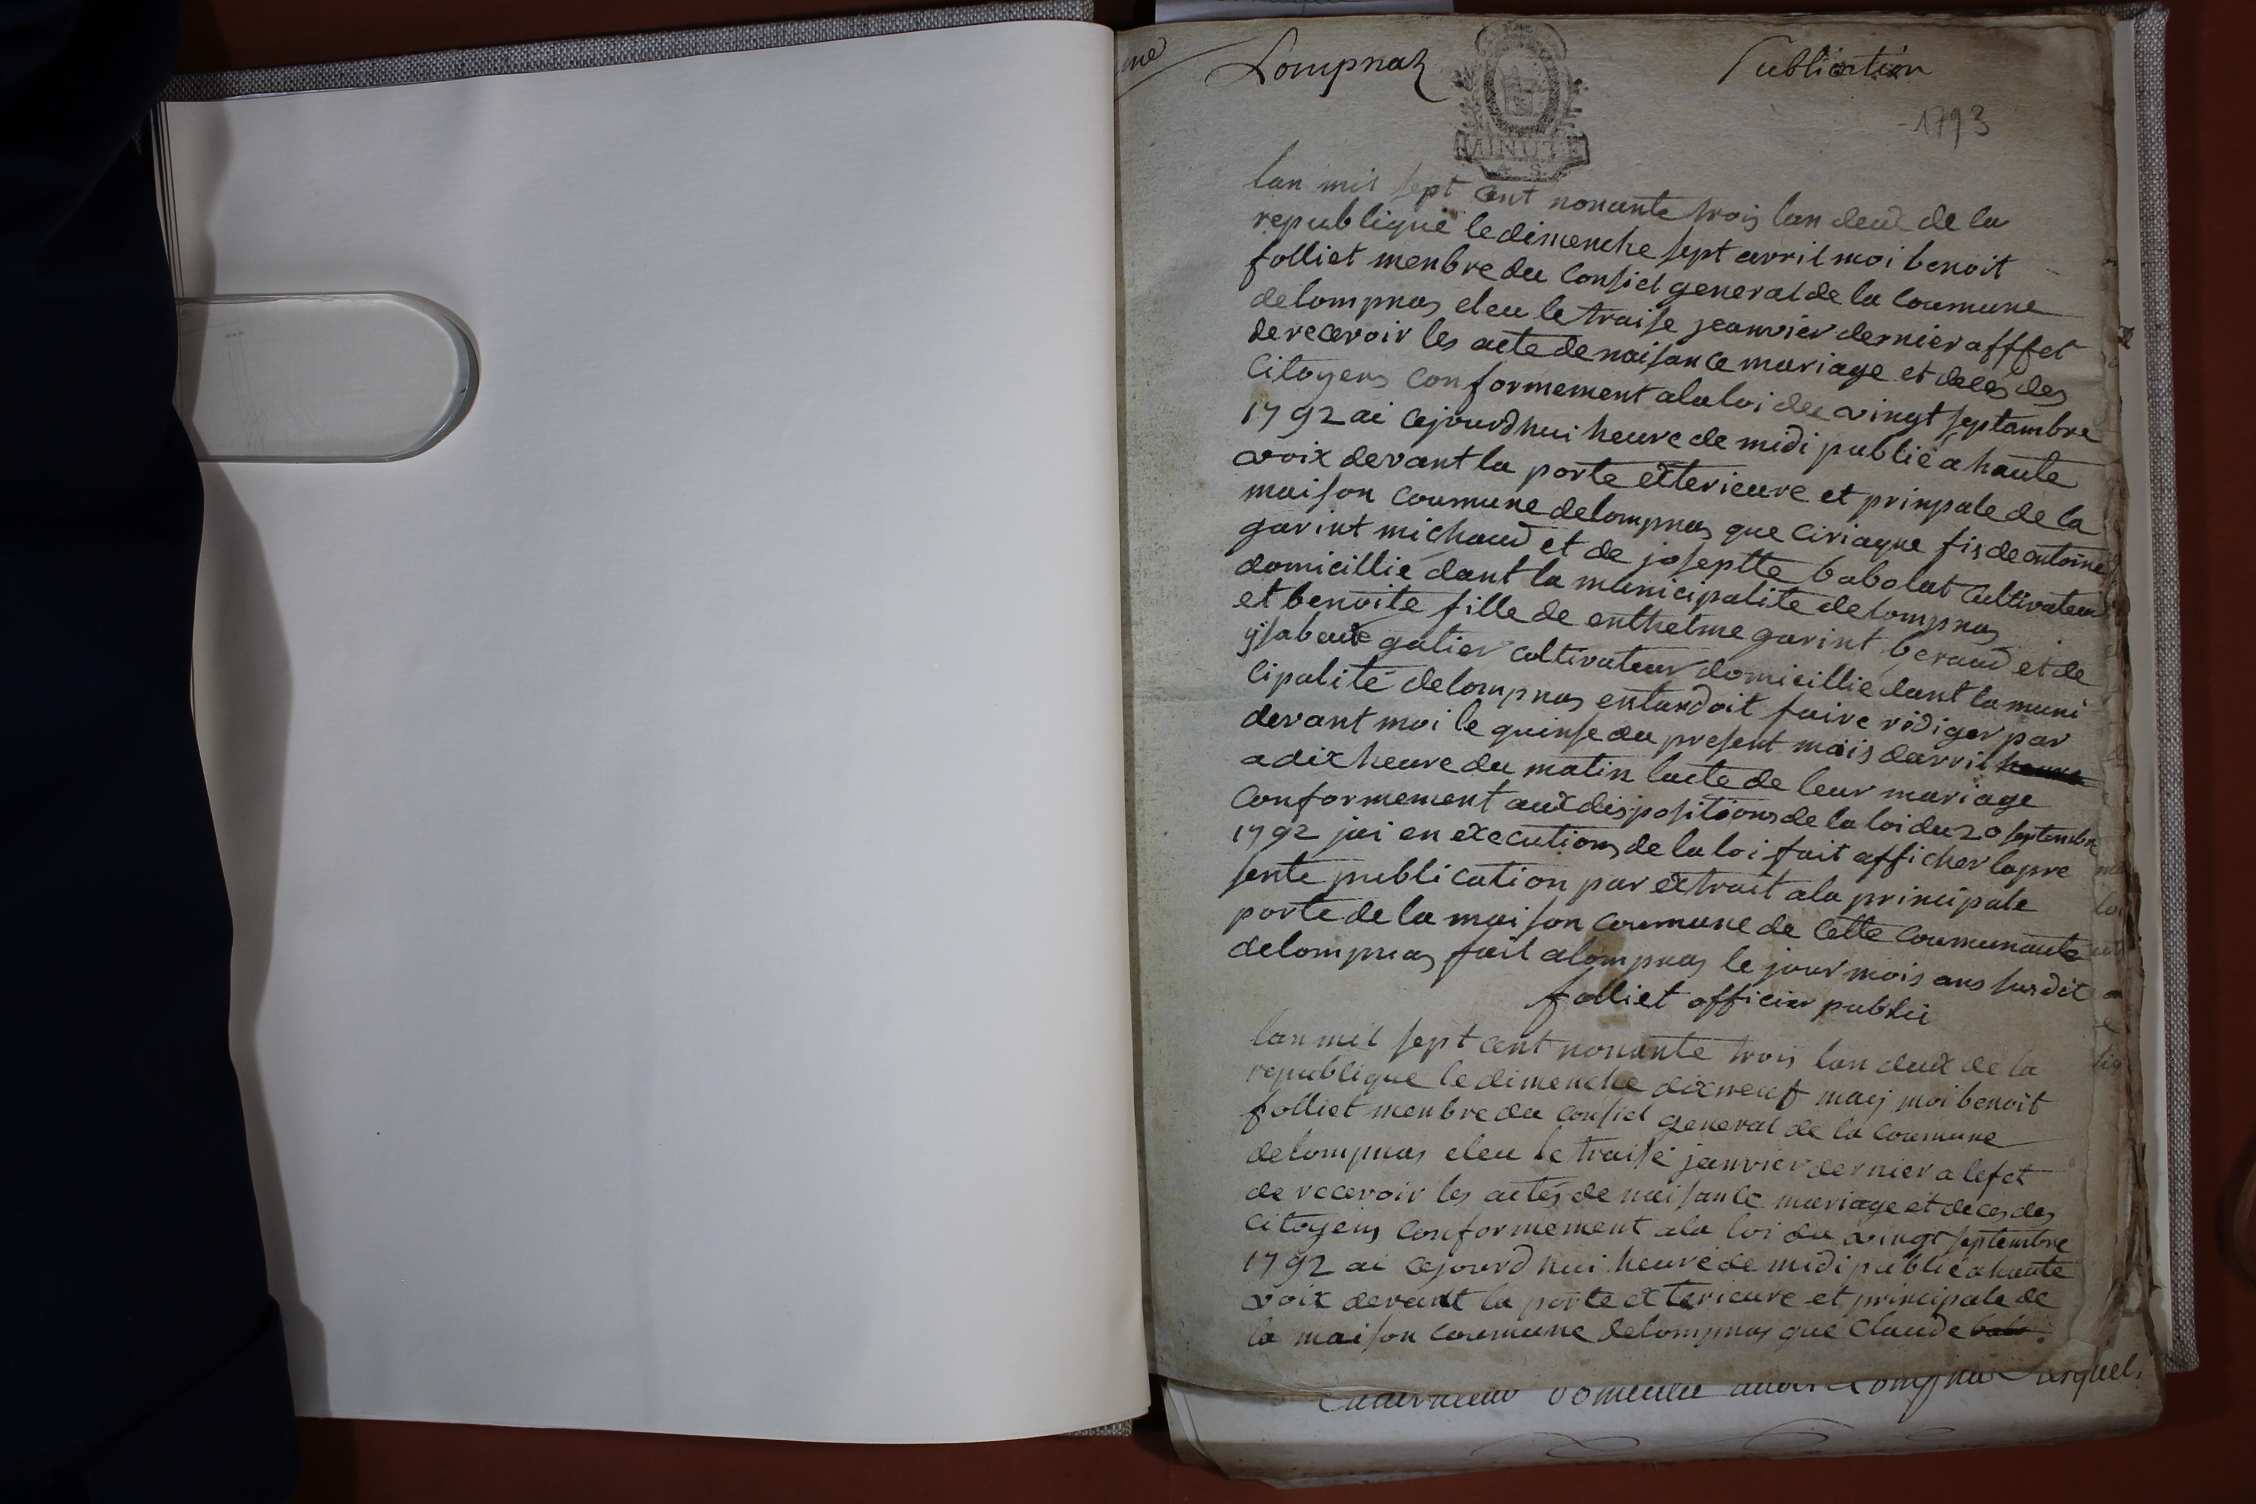 Lompnaz
Publication
1793
MINUTE
lan mil sept cent nonante trois lan deux de la
republique le dimenche sept avril moi benoit
folliet menbre du Consiel general de la Coumune
delompnas eleu le traise jeanvier dernier afffet
de recevoir les acte de naisance mariage et deces des
Citoyens conformement alaloi du vingt septambre
1792 ai cejourdhui heure de midi publié a haute
voix devant la porte exterieure et prinpale de la
maison coumune delompnas que Ciriaque fis de antoine
garint michaud et de joseptte babolat Cultivateur
domicillié dant la municipalite delompnas
et benoite fille de enthelme garint beraud et de
ysabeau galier cultivateur domicillie dant la muni
cipalité delompnas entandoit faire rédiger par
devant moi le quinse du present mois davril heure
a dix heure du matin lacte de leur mariage
conformement aux dispositions de la loi du 20 septembre
1792 jai en executions de la loi fait afficher lapre
sente publication par extrait ala principale
porte de la maison coumune de Cette coumunaute
delompnas fait alompnas le jour mois ans susdit
folliet officier publii
lan mil sept cent nonante trois lan deux de la
republique le dimenche dixneuf maij moi benoit
folliet menbre du consiel general de la coumune
delompnas eleu le traise janvier dernier a lefet
de recevoir les actes de naisance mariage et deces des
citoyens conformement ala loi du vingt septembre
1792 ai cejourdhui heure de midi publié a haute
voix devant la porte exterieure et principale de
la maison coumune delompnas que Claude